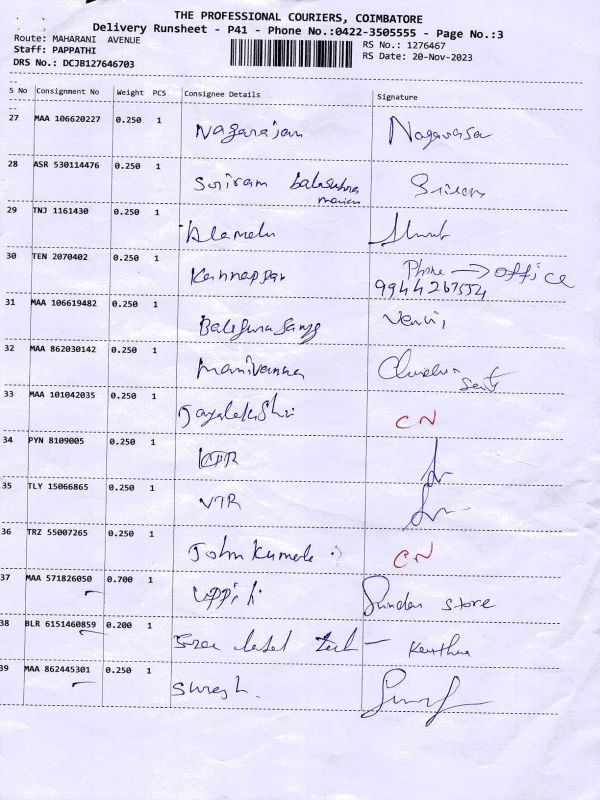 THE PROFESSIONAL COURIERS, COIMBATORE
Delivery Runsheet - P41 - Phone No.:0422-3505555 - Page No.:3
Route: MAHARANI AVENUE
Staff: PAPPATHI
DRS No.: DCJB127646703
RS No.: 1276467
RS Date: 20-Nov-2023
S No Consignment No Weight PCS Consignee Details Signature
27 MAA 106620227 0.250 1 Nagarajan
28 ASR 530114476 0.250 1 Sriram
29 TNJ 1161430 0.250 1 Alamelu
30 TEN 2070402 0.250 1 Kannappan Phone → office
9944267554
31 MAA 106619482 0.250 1
32 MAA 862030142 0.250 1 manivanna
33 MAA 101042035 0.250 1 Jayalakshi CN
34 PYN 8109005 0.250 1 KPR
35 TLY 15066865 0.250 1 VTR
36 TRZ 55007265 0.250 1 John Kumar CN
37 MAA 571826050 0.700 1 Sundar store
38 BLR 6151460859 0.200 1
39 MAA 862445301 0.250 1 Suresh.